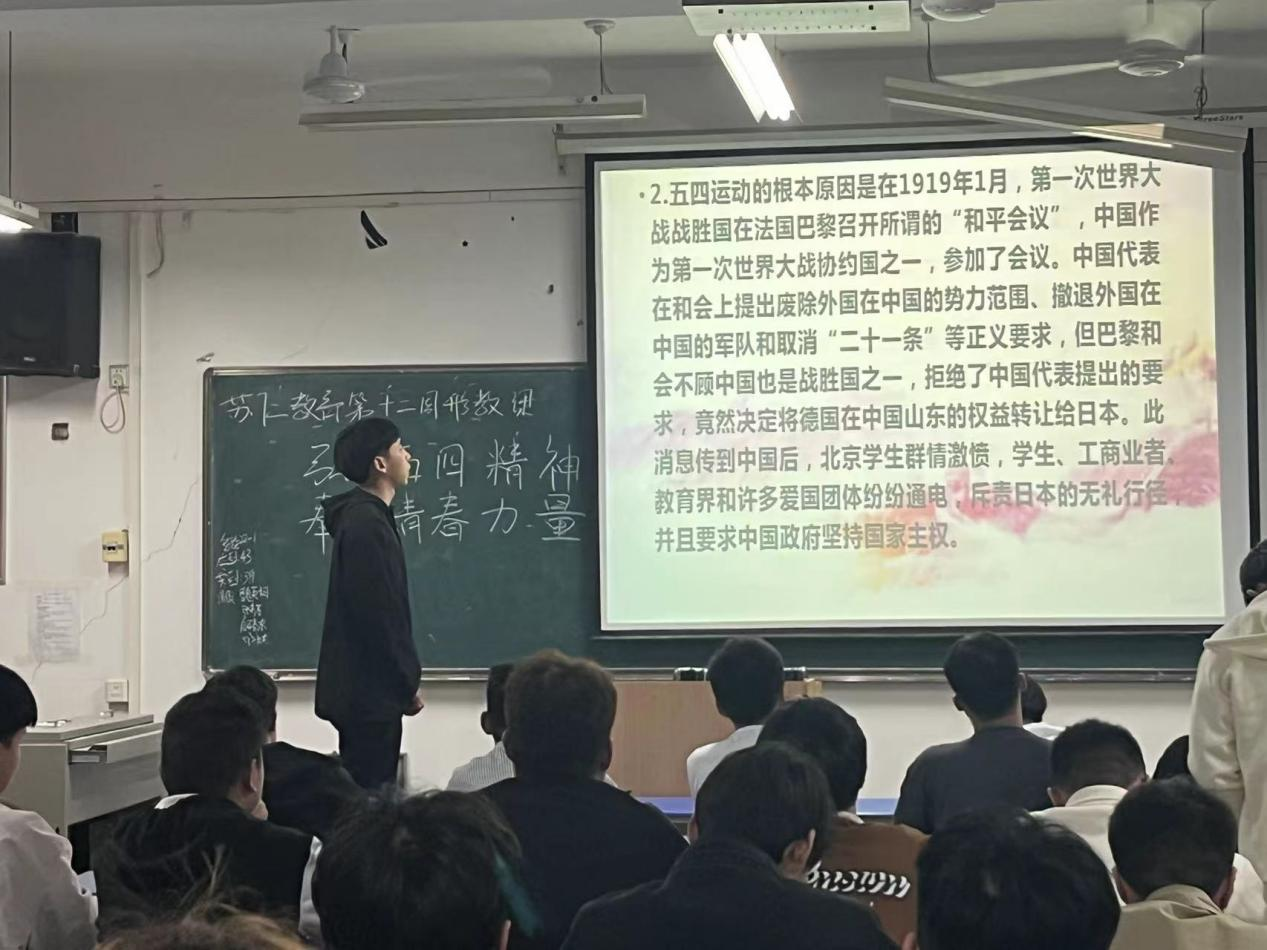 2.五四运动的根本原因是在1919年1月，第一次世界大
战战胜国在法国巴黎召开所谓的“和平会议”，中国作
为第一次世界大战协约国之一，参加了会议。中国代表
在和会上提出废除外国在中国的势力范围、撤退外国在
中国的军队和取消“二十一条”等正义要求，但巴黎和
会不顾中国也是战胜国之一，拒绝了中国代表提出的要
求，竟然决定将德国在中国山东的权益转让给日本。此
消息传到中国后，北京学生群情激愤，学生、工商业者、
教育界和许多爱国团体纷纷通电，斥责日本的无礼行径，
并且要求中国政府坚持国家主权。
教育第十二
四精神
青春力量